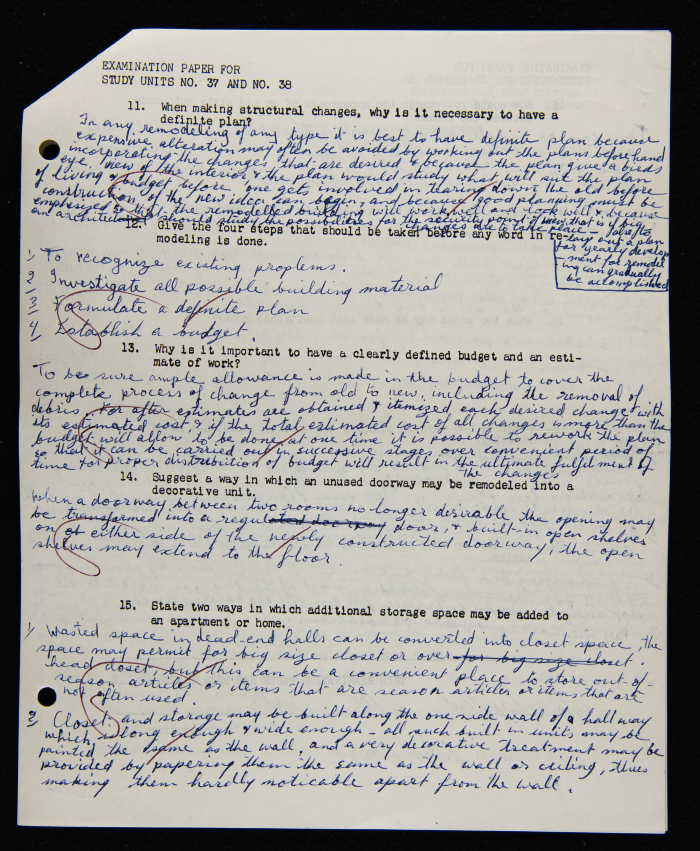 EXAMINATION PAPER FOR
STUDY UNITS NO. 37 AND NO. 38
11. When making structural changes, why is it necessary to have a
definite plan?
In any remodeling of any type it is best to have definite plan because
expensive alteration may often be avoided by working out the plans beforehand
incorporating the changes that are desired & because the plan give a birds
eye view of the interior & the plan would study what will suit the plan
of living & budget before one gets involved in tearing down the old before
construction of the new idea can begin, and because good planning must be
emphasized so that the remodelled building will work well and look well & because
an architect should study the possibilities for the security point of view, that is if big
changes are to take place — also to
lay out a plan
for yearly develop
-ment for remodel
-ing can gradually
be accomplished
12. Give the four steps that should be taken before any word in re-
modeling is done.
1) To recognize existing proplems.
2 Investigate all possible building material
3 Formulate a definite plan
4 Establish a budget.
13. Why is it important to have a clearly defined budget and an esti-
mate of work?
To be sure ample allowance is made in the budget to cover the
complete process of change from old to new, including the removal of
debris. For after estimates are obtained & itemized each desired change with
its estimated cost, & if the total estimated cost of all changes is more than the
budget will allow to be done at one time it is possible to rework the plan
so that it can be carried out in successive stages over convenient period of
time for proper distribuition of budget will result in the ultimate fulfilment of
the changes
14. Suggest a way in which an unused doorway may be remodeled into a
decorative unit.
when a doorway between two rooms no longer desirable the opening may
be transformed into a regulated doorway door, & built-in open shelves
on of either side of the newly constructed doorway, the open
shelves may extend to the floor
15. State two ways in which additional storage space may be added to
an apartment or home.
1) Wasted space in dead-end halls can be converted into closet space, the
space may permit for big size closet or over for big size closet.
head closet, but this can be a convenient place to store out-of-
season articles or items that are season articles or items that are
not often used.
2 Closet and storage may be built along the one side wall of a hallway
which is long enough & wide enough - all such built in units may be
painted the same as the wall, and a very decorative treatment may be
provided by papering them the same as the wall or ceiling, thus
making them hardly noticable apart from the wall.